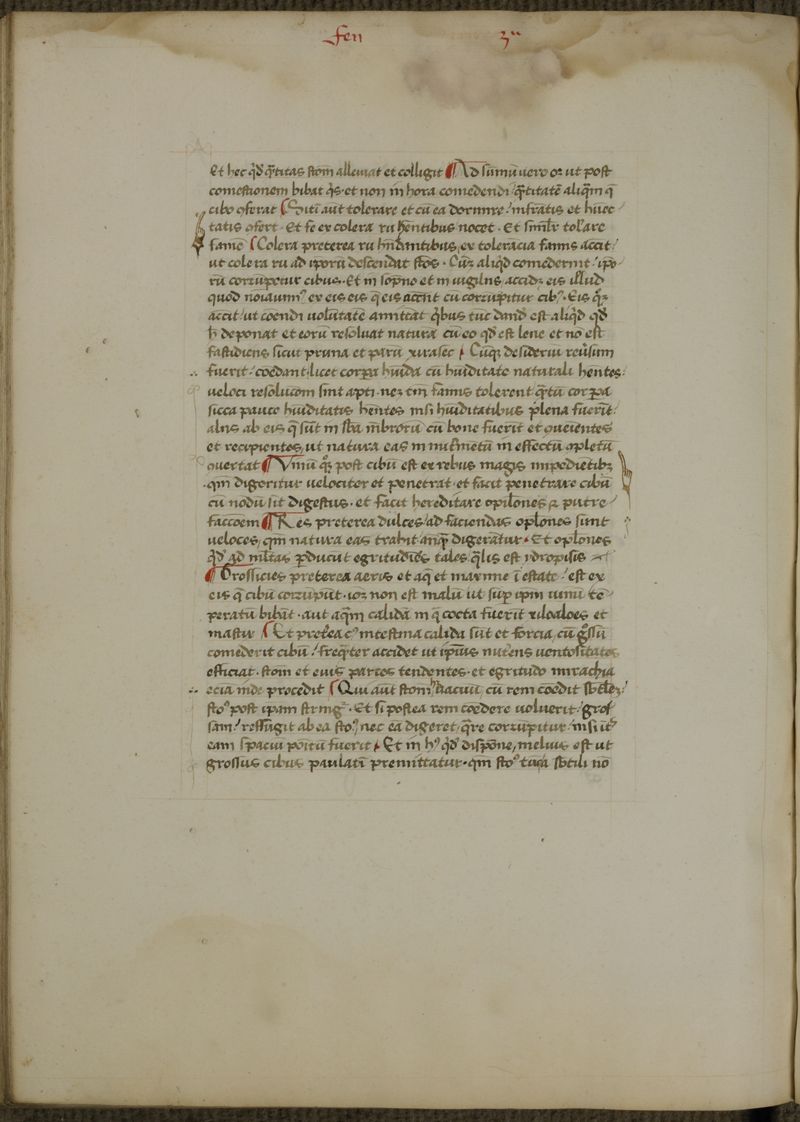 fen 3ª
Et hec qd̄ q̄titas stom̄ alleuiat et colligit ¶ Ad sum̄u uero oꝫ ut post
comestionem bibat q̄s · et non in hora comedendi q̄titatē aliq̄m q̄
cibo ɔferat Sitī aūt tolerare et cū ea dormire
tatis ɔfert · Et fe ex colera ru hēntibus nocet · Et simlr̄ tol'are
famē Colera preterea ru hn̄dantibus, ex tolerācia famis accit
ut colera ru ad ip̄orū descendat stōs · Cūꝫ aliqd̄ comederint ip̄o
rū corrūpetur cibus · Et in sop̄no et in uigiliis accidꝫ eis illud
quod noīauimꝰ ex eis eis q̄ eis accnt cū corrūpitur cibꝰ · Eis q̄ꝫ
accit ut coendi uolūtatē amittat q̄bus tūc dand̄ est aliqd̄ qd̄
h̄ deponat et eorū resoluat natura cū eo qd̄ est lene et nō est
fastidiens sicut pruna et parū xirasec Cūqꝫ desideriū
fuerit coedant licet corpa hūida cū hūiditate naturali hentes
ueloci resolucōm sint apti · neꝫ tm̄ famis tolerent q̄tū corpa
sicca pauce hūiditatis hentes nisi hūiditatibus plena fuerit
aliis ab eis q̄ sūt in sb̄a mb̄rorū cū bone fuerit et ɔueientes
et recipientes, ut natura eas in nut'metū in effectū ɔpletū
ɔuertat ¶ Vinū qꝫ post cibū est ex rebus magis impedietibꝫ
· qm̄ digeritur uelociter et penetrat · et facit penetrare cibū
cū nōdū sit digestus · et facit hereditare opilōnes ꝛ putre
faccōem ¶ Res preterea dulces ad faciendas oplōnes sunt
ueloces, qm̄ natura eas trahit anq̄ digerātur · Et oplōnes
qd̄ ad ml̄tas ꝓducūt egritudīēs tales q̄lis est idropisis
¶ Grossicies preterea aeris et aq̄ et maxime ī estate est ex
eis q̄ cibū corrūpūt · ioꝫ non est malū ut suꝑ ip̄m uinū tē
peratū bibāt · aut aq̄m calidā in q̄ cocta fuerit xiloaloes et
mastix Et pret'ea cꝰ intestina calida sūt et forcia, cū gͦssū
comederit cibū freq̄ter accidet ut ip̄ius nutiens uentositates
efficiat · stom̄ et euis partes tendentes · et egritudo mirachia
ecia inde procedit Qui aūt stomꝰ uacuū cū rem coedit sb̄tilē
stoꝰ post ipam string' · Et si postea rem coedere uoluerit gros
sam reffugit ab ea stoꝰ nec eā digeret, q̄re corrūpitur · nisi
eam spaciū poitū fuerit · Et in hꝰ qd̄ dispōne, melius est ut
grossus cibus paulatī premittatur · qm̄ stoꝰ tūc sb̄tili nō